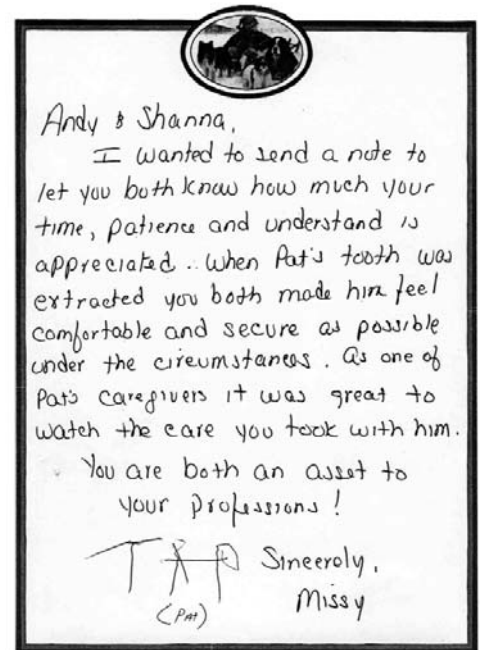 Andy & Shanna,
I wanted to send a note to
let you both know how much your
time, patience and understand is
appreciated.. When Pat's tooth was
extracted you both made him feel
comfortable and secure as possible
under the circumstances. As one of
Pat's caregivers it was great to
watch the care you took with him.
You are both an asset to
your professions!
Sincerely,
(PAt)
Missy